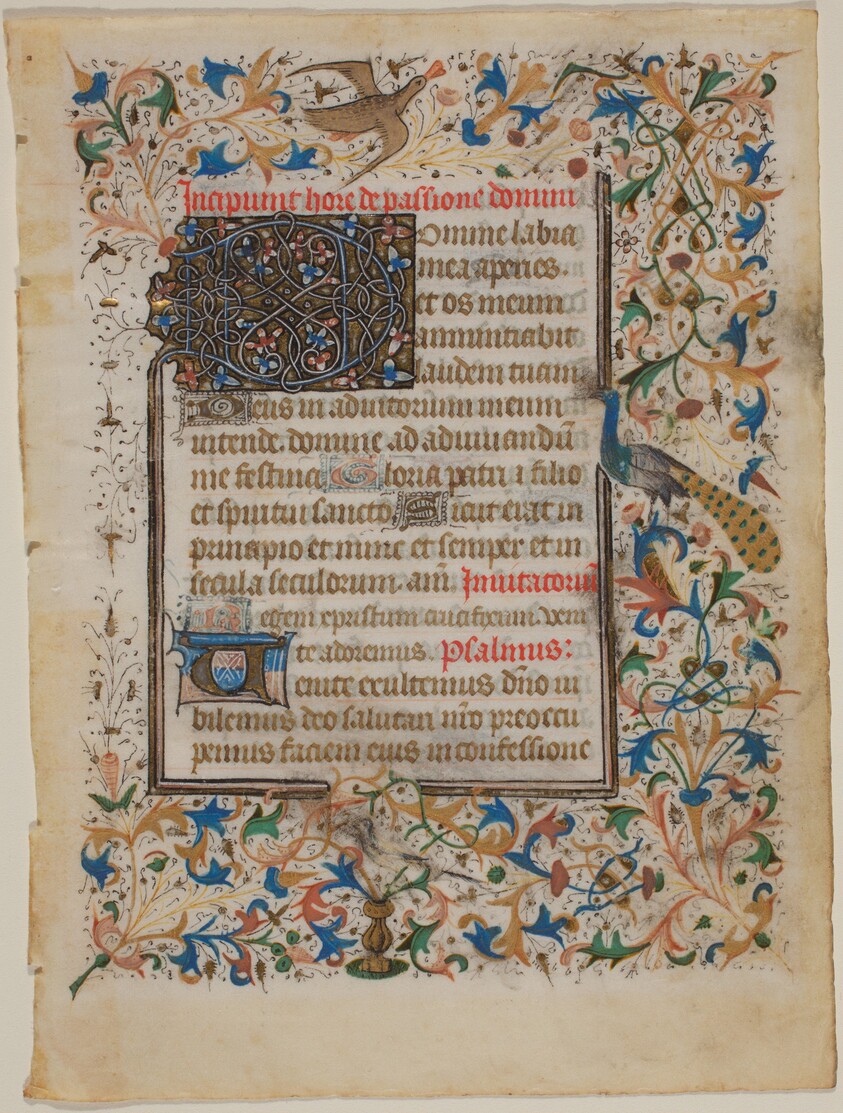 Incipiunt hore de passione domini
Domine labia
mea aperies.
et os meum
annuntiabit
laudem tuam
Deus in adiutorium meum
intende. domine ad adiuuandū
me festina Gloria patri i filio
et spiritui sancto Sicut erat in
principio et nunc et semper et in
secula seculorum. am̄ Inuitatoriū
Regem xpristum crucifixum. veni
te adoremus Psalmus:
Uenite exultemus dn̄o iu
bilemus deo salutari nr̄o preoccu
pemus faciem eius in confessione